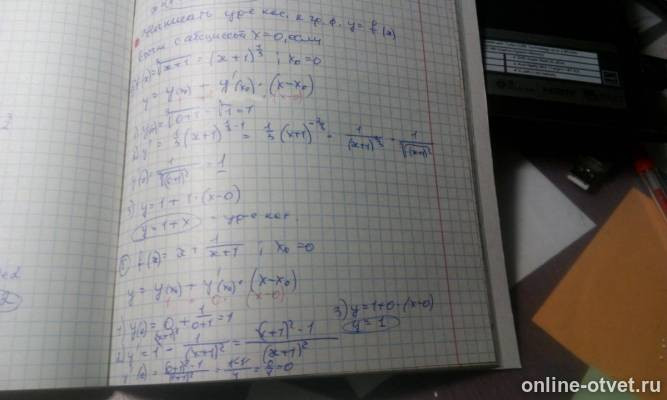 написать ур-е кас. к гр. ф. y = f(x)
с абсциссой x=0, если
f(x)=∛x+1 = (x+1)^⅓ ; x₀=0
y = y(x₀) + y'(x₀)·(x-x₀)
1) y(x₀)=∛0+1 = ∛1 = 1
2) y' = 1/3 (x+1)^(1/3 - 1) = 1/3 (x+1)^(-2/3) = 1/(x+1)^(2/3) = 1/∛(x+1)²
y'(0)= 1/∛(0+1)² = 1
3) y=1+1·(x-0)
y=1+x - ур-е кас.
f(x)= x + 1/(x+1) ; x₀=0
y = y(x₀) + y'(x₀)·(x-x₀)
1 0 (x-0)
1) y(0)= 0 + 1/(0+1) = 1
3) y=1+0·(x-0)
y=1
2) y' = 1 - 1/(x+1)² = ((x+1)²-1)/(x+1)²
y'(0)= ((0+1)²-1)/(0+1)² = (1-1)/1 = 0/1 = 0
online-otvet.ru